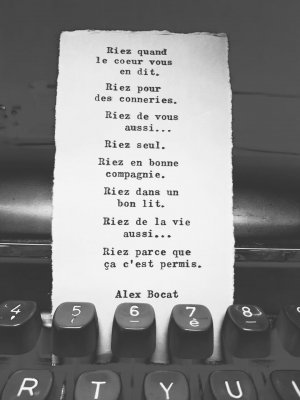 Riez quand
le coeur vous
en dit.
Riez pour
des conneries.
Riez de vous
aussi...
Riez seul.
Riez en bonne
compagnie.
Riez dans un
bon lit.
Riez de la vie
aussi...
Riez parce que
ça c'est permis.
Alex Bocat
4 5 6 7 è 8 9
R T Y U I